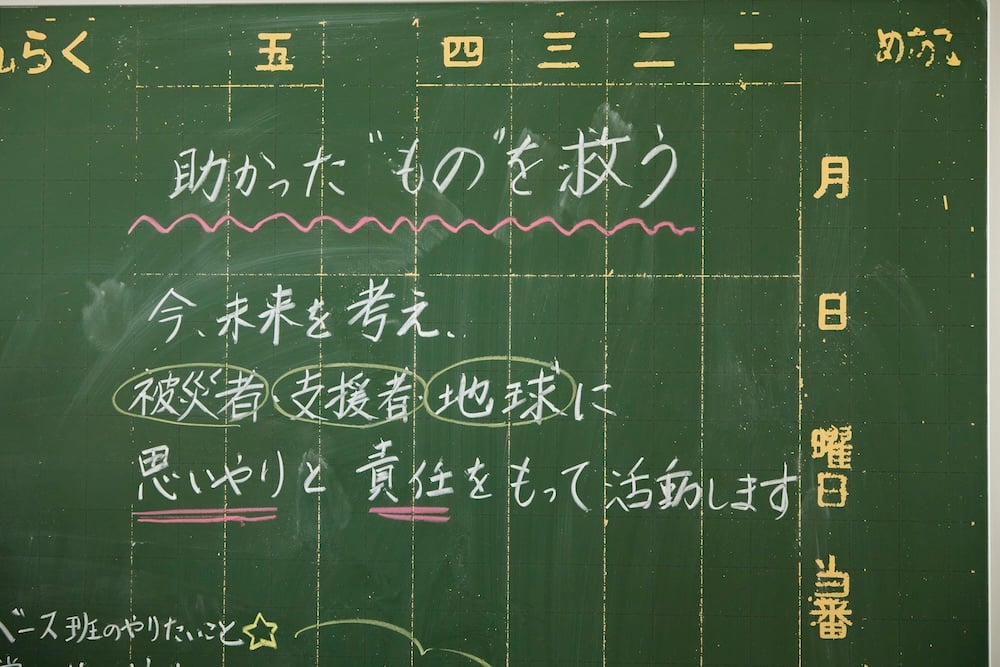 らく 五 四 三 二 一 めあて
助かった"もの"を救う
今、未来を考え、
被災者・支援者・地球に
思いやりと責任をもって活動します
ベース班のやりたいこと☆
月
日
曜日
当番